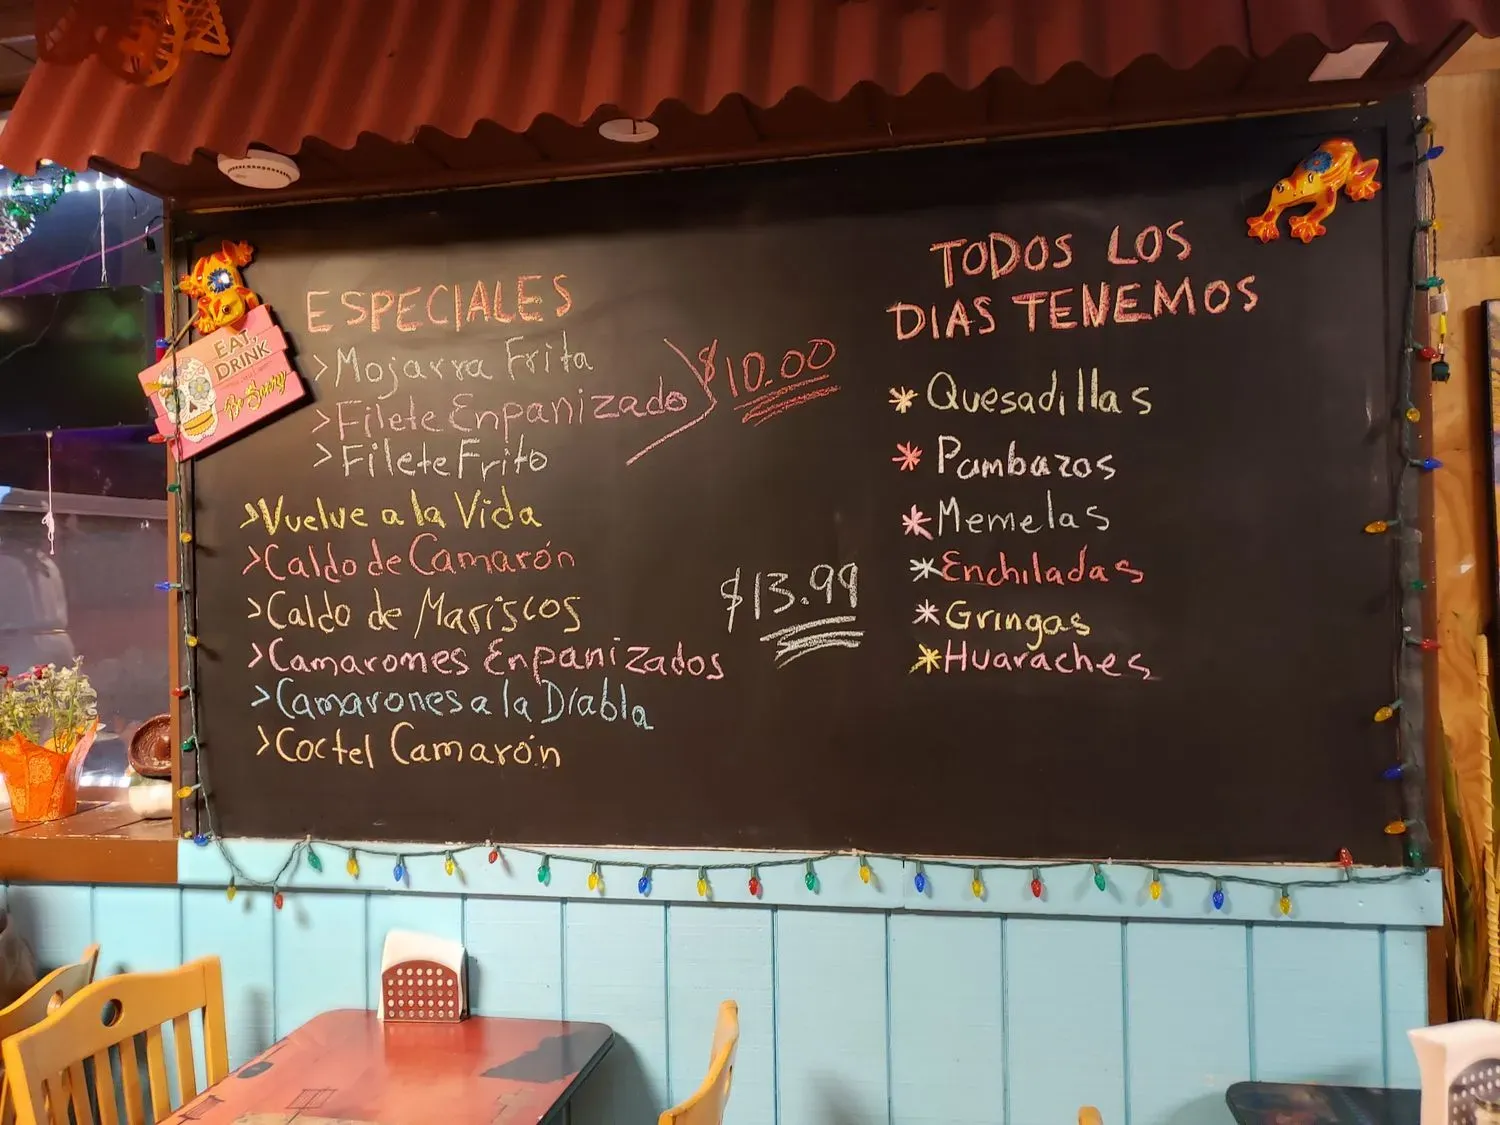 EAT,
DRINK
Be Scary
ESPECIALES
>Mojarra Frita
>Filete Enpanizado
>Filete Frito
$10.00
>Vuelve a la Vida
>Caldo de Camarón
>Caldo de Mariscos
>Camarones Enpanizados
>Camarones a la Diabla
>Coctel Camarón
$13.99
TODOS LOS
DIAS TENEMOS
*Quesadillas
*Pambazos
*Memelas
*Enchiladas
*Gringas
*Huaraches